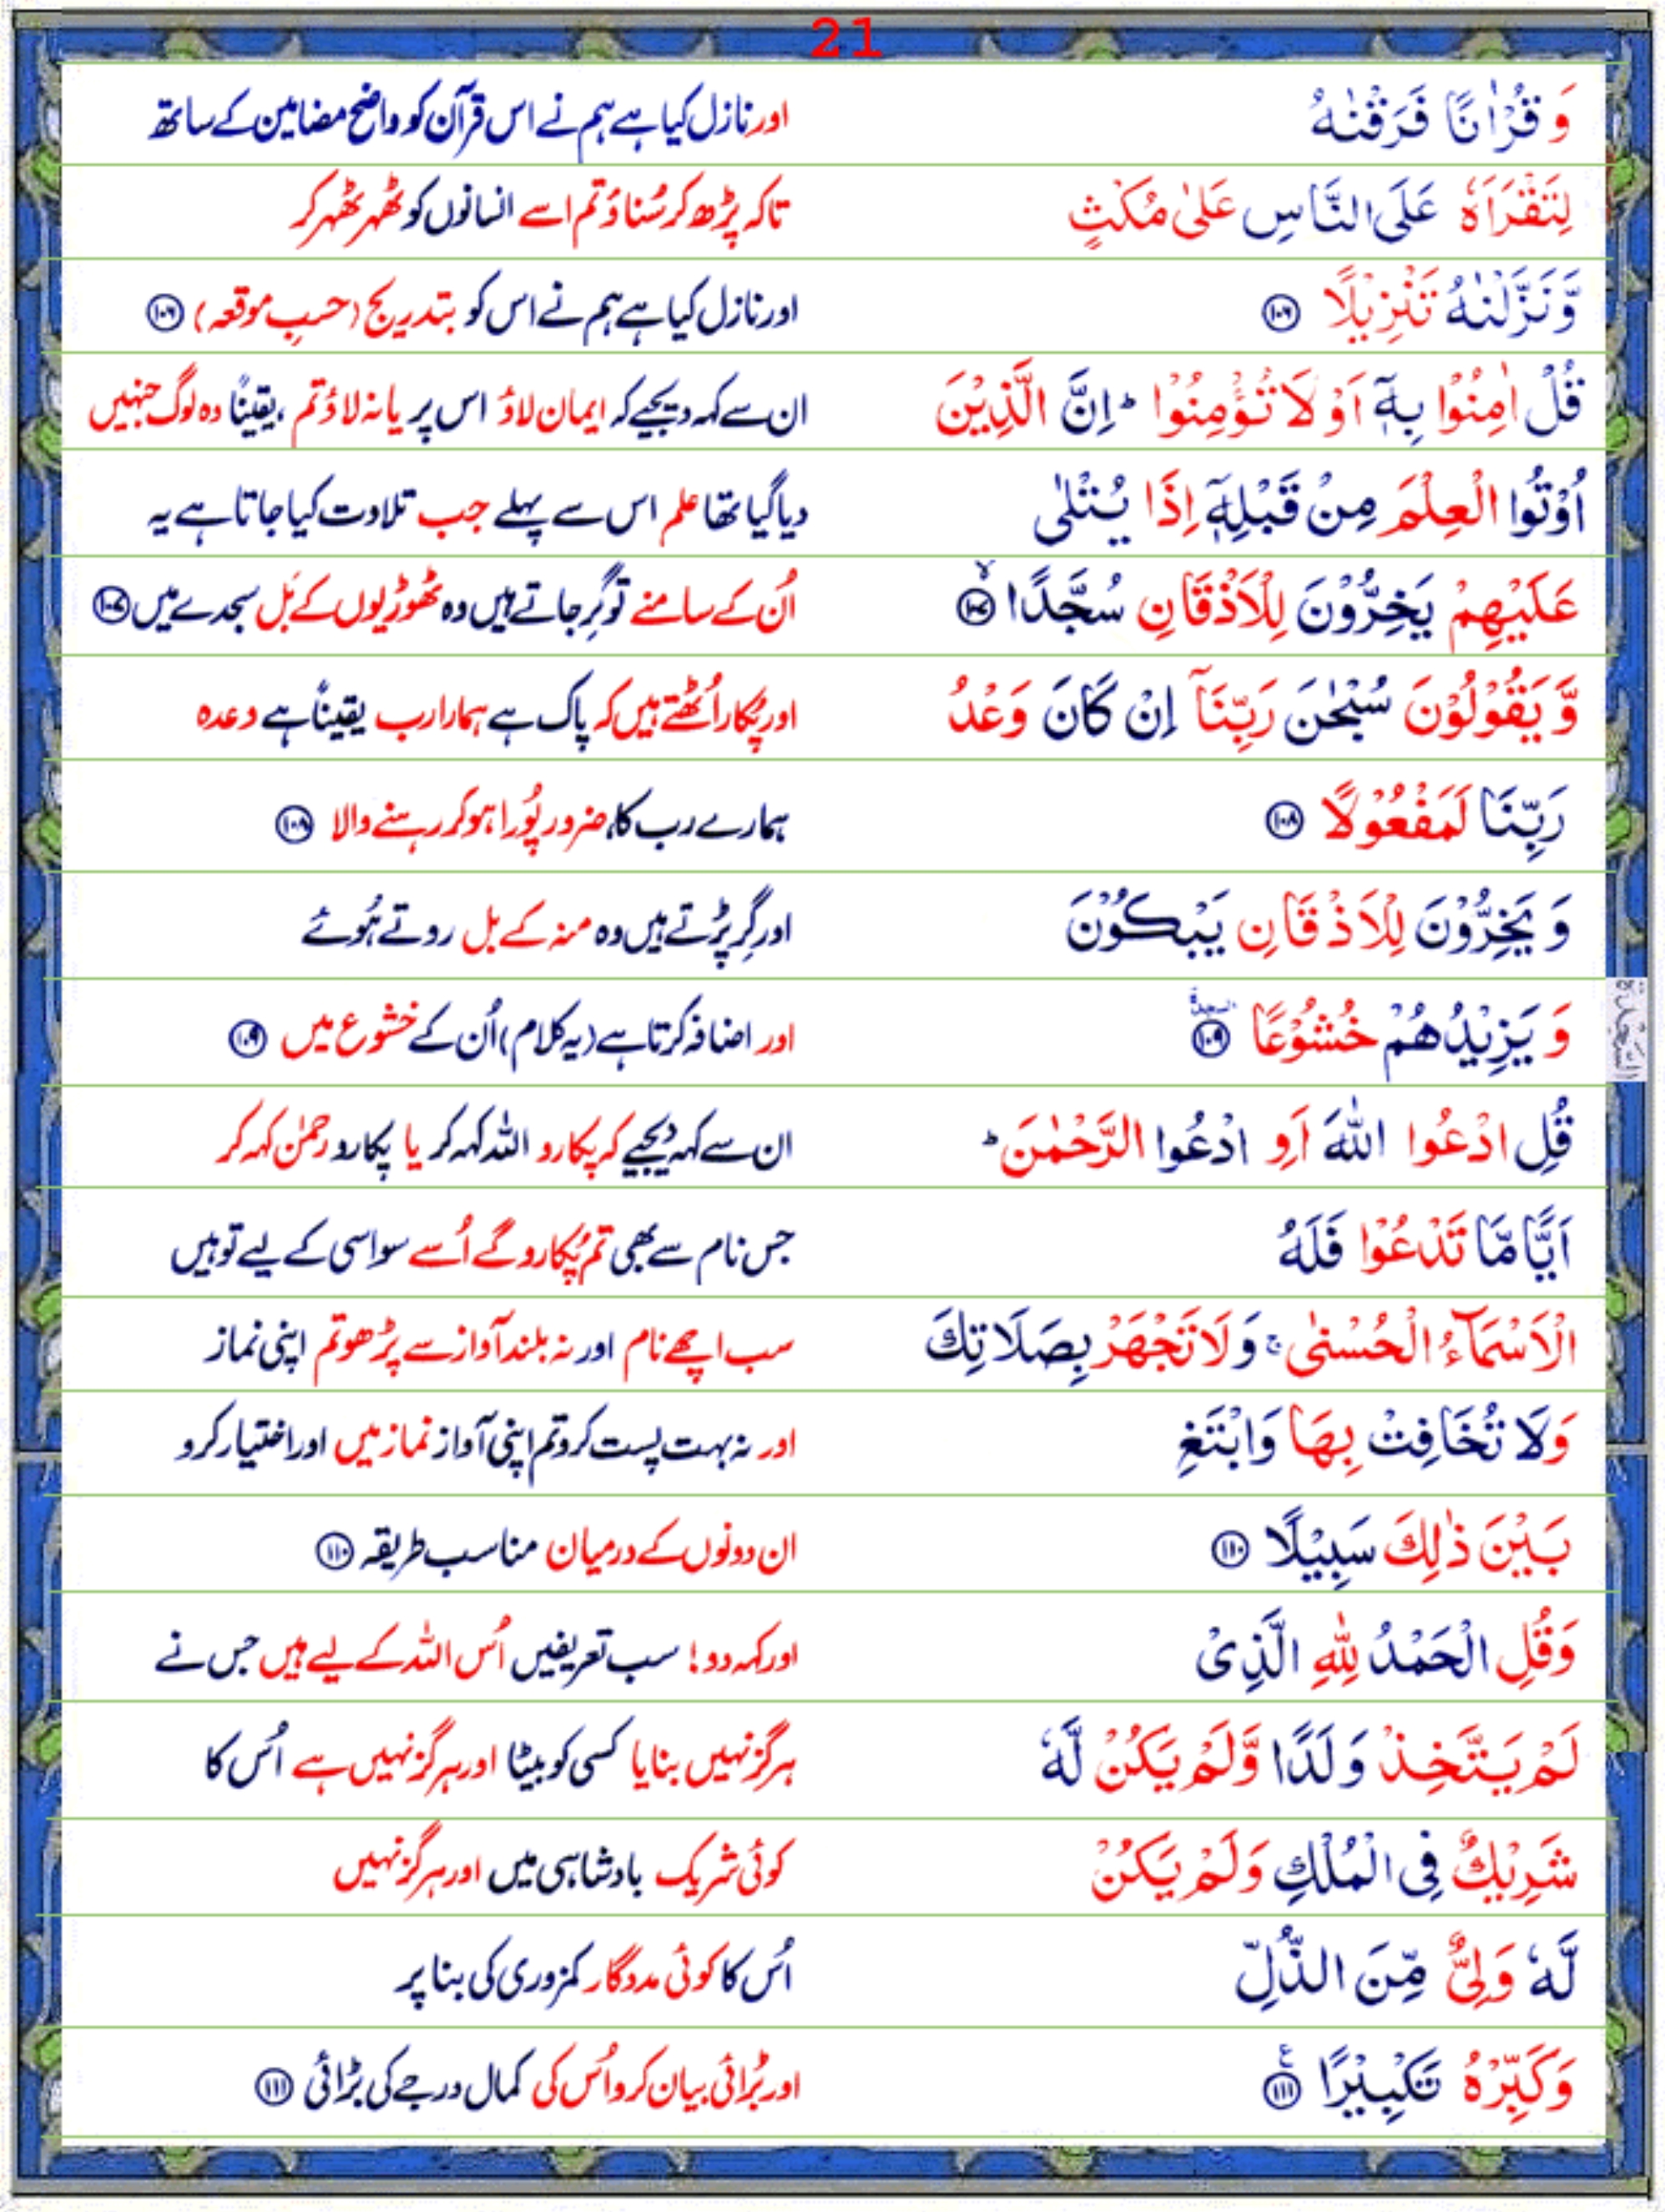 21
وَ قُرْاٰنًا فَرَقْنٰهُ اور نازل کیا ہے ہم نے اس قرآن کو واضح مضامین کے ساتھ
لِتَقْرَاَهٗ عَلَى النَّاسِ عَلٰى مُكْثٍ تاکہ پڑھ کر سُناؤ تم اسے انسانوں کو ٹھہر ٹھہر کر
وَّ نَزَّلْنٰهُ تَنْزِيْلًا ۝۱۰۶ اور نازل کیا ہے ہم نے اس کو بتدریج (حسبِ موقعہ) ۝۱۰۶
قُلْ اٰمِنُوْا بِهٖٓ اَوْ لَا تُؤْمِنُوْا ؕ اِنَّ الَّذِيْنَ ان سے کہہ دیجیے کہ ایمان لاؤ اس پر یا نہ لاؤ تم ،یقیناً وہ لوگ جنہیں
اُوْتُوا الْعِلْمَ مِنْ قَبْلِهٖٓ اِذَا يُتْلٰى دیا گیا تھا علم اس سے پہلے جب تلاوت کیا جاتا ہے یہ
عَلَيْهِمْ يَخِرُّوْنَ لِلْاَذْقَانِ سُجَّدًا ۝۱۰۷ۙ اُن کے سامنے تو گِر جاتے ہیں وہ ٹھوڑیوں کے بَل سجدے میں ۝۱۰۷
وَّ يَقُوْلُوْنَ سُبْحٰنَ رَبِّنَآ اِنْ كَانَ وَعْدُ اور پُکار اُٹھتے ہیں کہ پاک ہے ہمارا رب یقیناً ہے وعدہ
رَبِّنَا لَمَفْعُوْلًا ۝۱۰۸ ہمارے رب کا، ضرور پُورا ہو کر رہنے والا ۝۱۰۸
وَ يَخِرُّوْنَ لِلْاَذْقَانِ يَبْكُوْنَ اور گِر پڑتے ہیں وہ منہ کے بل روتے ہُوئے
وَ يَزِيْدُهُمْ خُشُوْعًا ۝۱۰۹ السجدة اور اضافہ کرتا ہے (یہ کلام) اُن کے خشوع میں ۝۱۰۹
السَّجْدَة
قُلِ ادْعُوا اللّٰهَ اَوِ ادْعُوا الرَّحْمٰنَ ؕ ان سے کہہ دیجیے کہ پکارو اللہ کہہ کر یا پکارو رحمٰن کہہ کر
اَيًّا مَّا تَدْعُوْا فَلَهُ جس نام سے بھی تم پُکارو گے اُسے سو اسی کے لیے تو ہیں
الْاَسْمَآءُ الْحُسْنٰى ۚ وَ لَا تَجْهَرْ بِصَلَاتِكَ سب اچھے نام اور نہ بلند آواز سے پڑھو تم اپنی نماز
وَلَا تُخَافِتْ بِهَا وَابْتَغِ اور نہ بہت پست کرو تم اپنی آواز نماز میں اور اختیار کرو
بَيْنَ ذٰلِكَ سَبِيْلًا ۝۱۱۰ ان دونوں کے درمیان مناسب طریقہ ۝۱۱۰
وَقُلِ الْحَمْدُ لِلّٰهِ الَّذِىْ اور کہہ دو! سب تعریفیں اُس اللہ کے لیے ہیں جس نے
لَمْ يَتَّخِذْ وَلَدًا وَّلَمْ يَكُنْ لَّهٗ ہرگز نہیں بنایا کسی کو بیٹا اور ہرگز نہیں ہے اُس کا
شَرِيْكٌ فِى الْمُلْكِ وَلَمْ يَكُنْ کوئی شریک بادشاہی میں اور ہرگز نہیں
لَّهٗ وَلِىٌّ مِّنَ الذُّلِّ اُس کا کوئی مددگار کمزوری کی بنا پر
وَكَبِّرْهُ تَكْبِيْرًا ۝۱۱۱ۧ اور بڑائی بیان کرو اُس کی کمال درجے کی بڑائی ۝۱۱۱